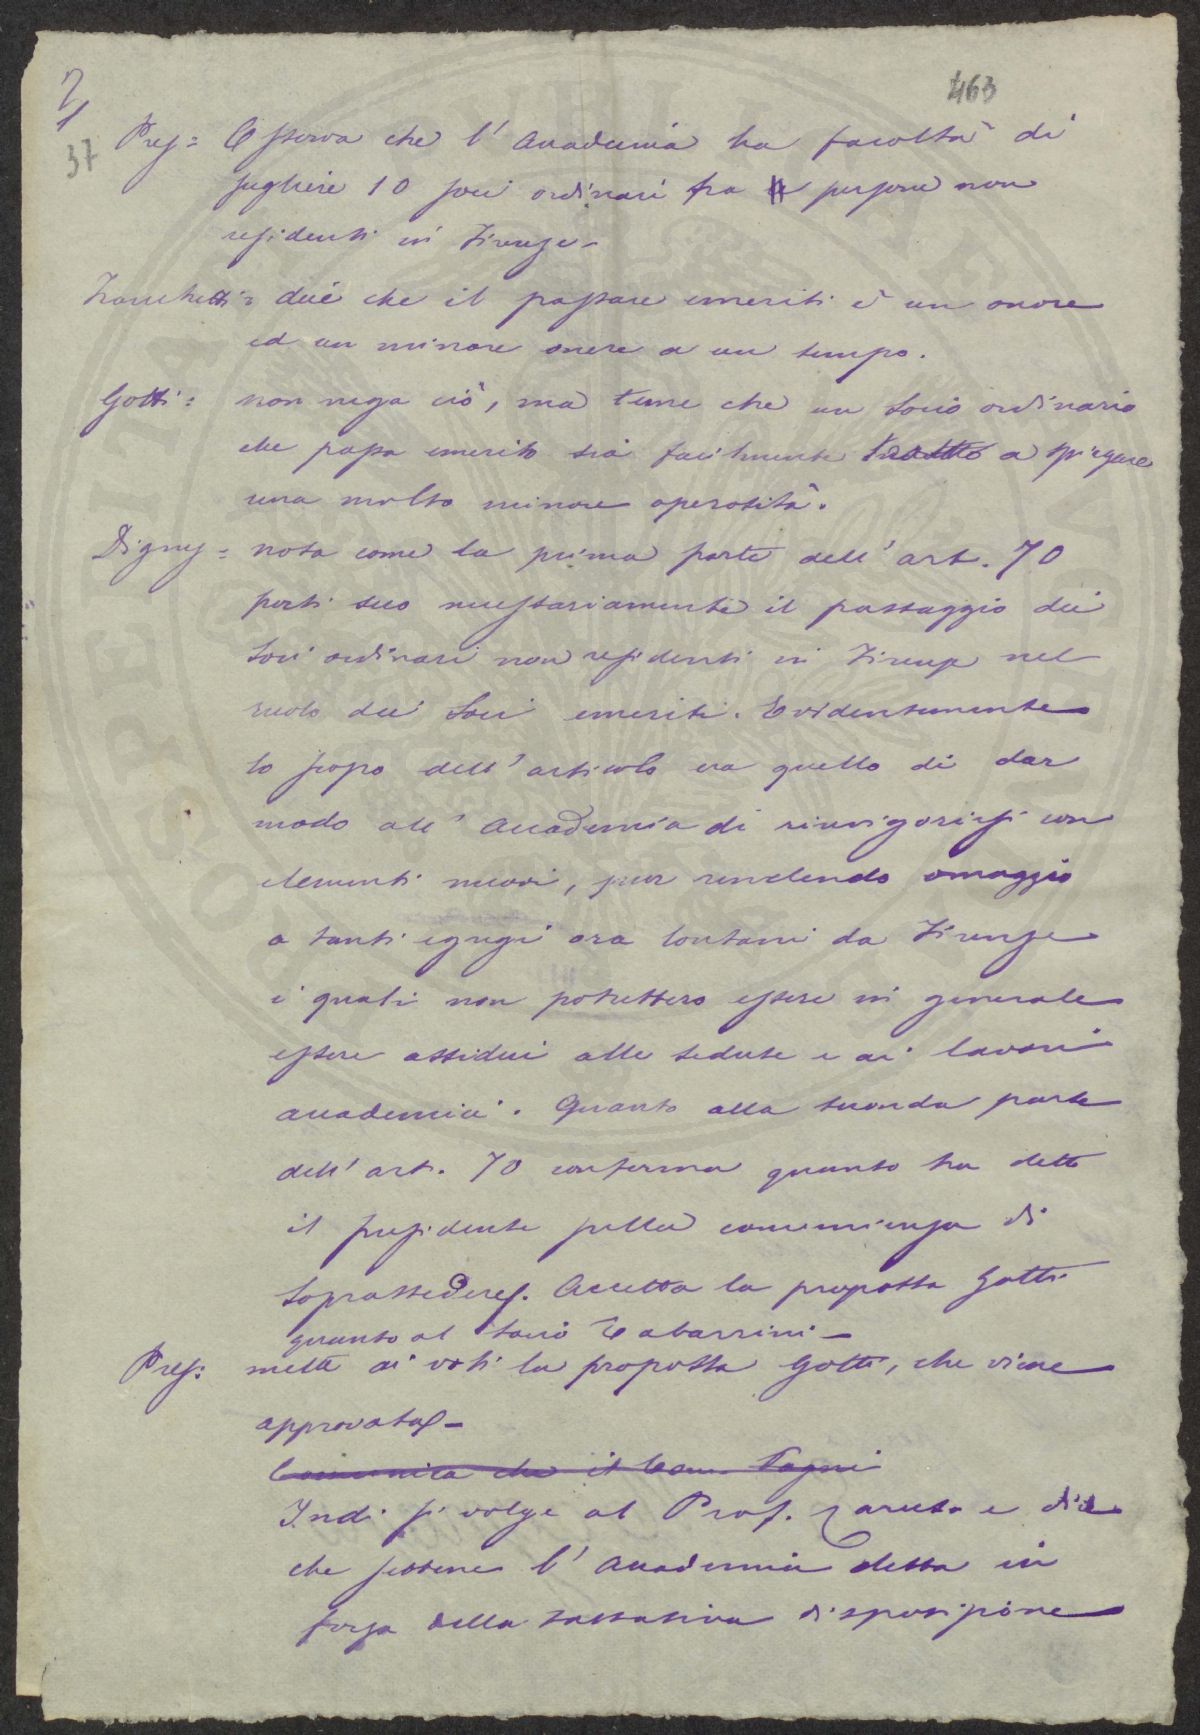 2
463
37
Pres= Osserva che l'Accademia ha facoltà di
scegliere 10 soci ordinari fra persone non
residenti in Firenze-
Franchetti= dice che il passare emeriti è un onore
ed un minore onere a un tempo.
Gotti= non nega ciò, ma teme che un Socio ordinario
che passa emerito sia facilmente tradotto a spiegare
una molto minore operosità.
Digny= nota come la prima parte dell'art. 70
porti seco necessariamente il passaggio dei
Soci ordinari non residenti in Firenze nel
ruolo dei Soci emeriti. Evidentemente
lo scopo dell'articolo era quello di dar
modo all'Accademia di rinvigorirsi con
elementi nuovi, pur rendendo omaggio
a tanti egregi ora lontani da Firenze
i quali non potrebbero essere in generale
essere assidui alle sedute e ai lavori
accademici. Quanto alla seconda parte
dell'art. 70 conferma quanto ha detto
il presidente sulla convenienza di
soprassedere. Accetta la proposta Gotti
quanto al socio Tabarrini-
Pres: mette ai voti la proposta Gotti, che viene
approvata-
Comunica che il Com. Pagni
Indi si volge al Prof. e dice
che sebbene l'Accademia debba in
forza della tassativa disposizione